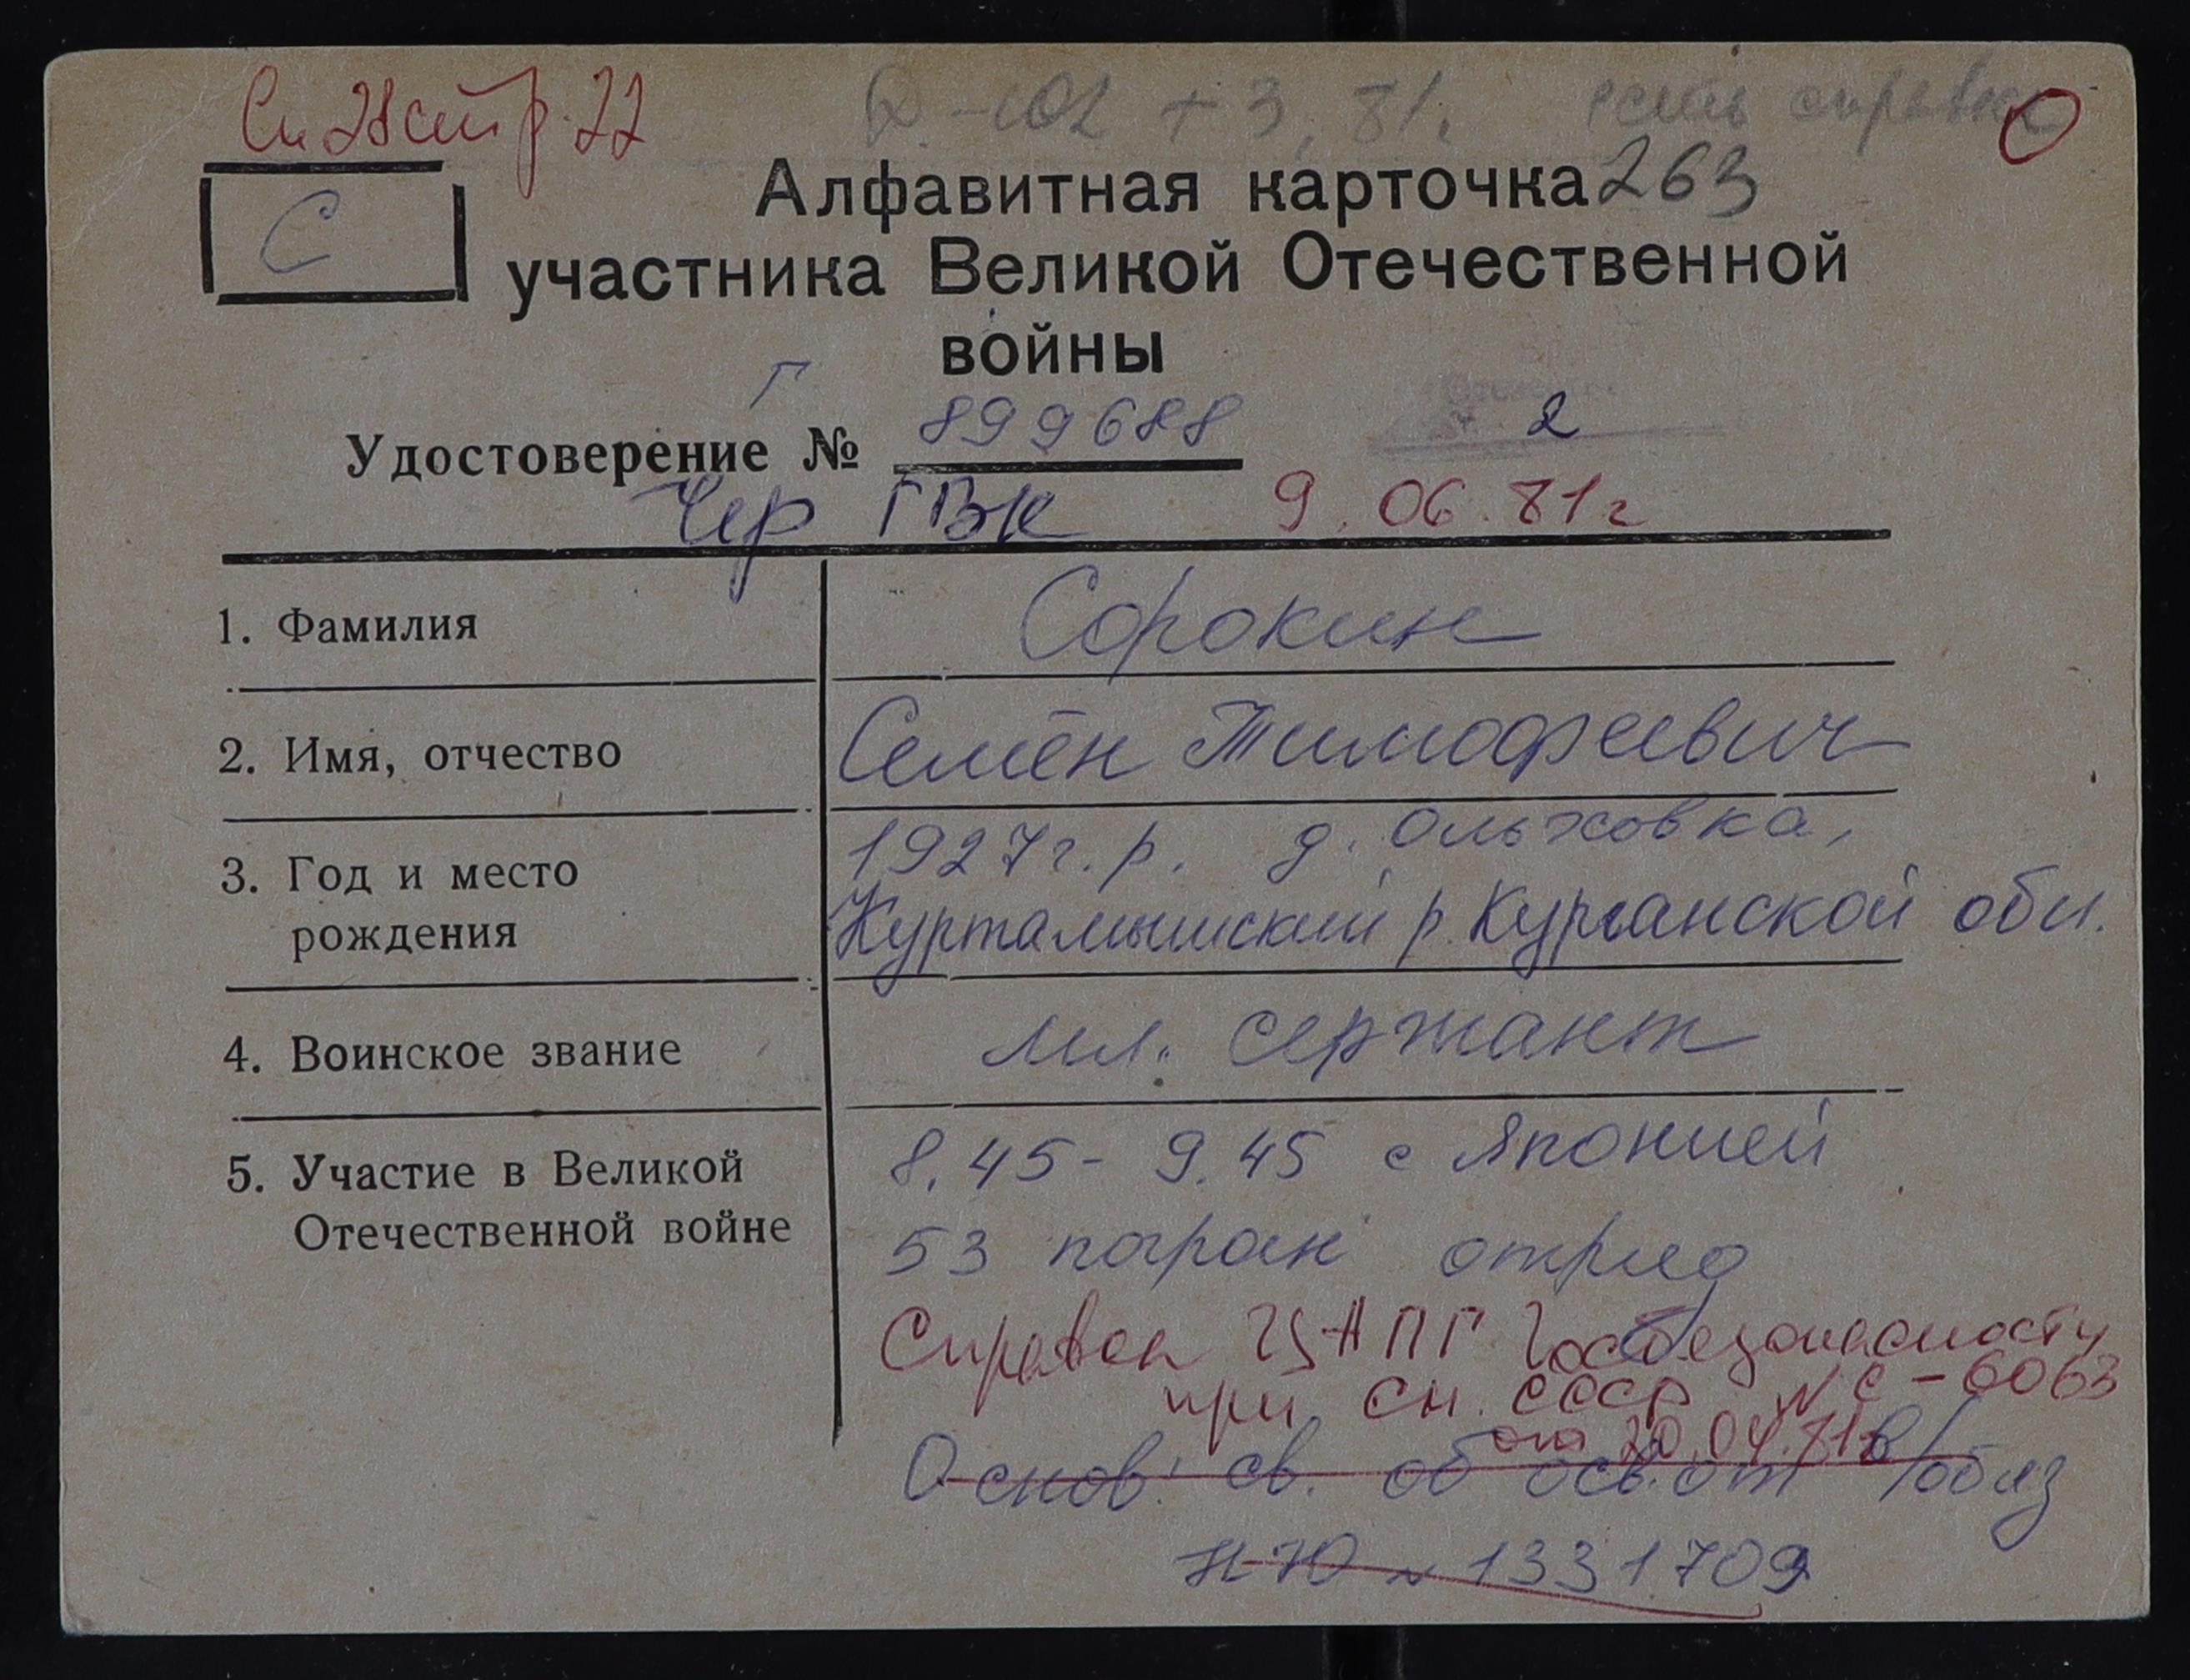 Сп 28 стр. 22
есть справка
О
С
Алфавитная карточка 263
участника Великой Отечественной
войны
Г
Удостоверение № 899688
2
Чер ГВК 9.06.81г
1. Фамилия Сорокин
2. Имя, отчество Семён Тимофеевич
3. Год и место 1927г.р. д. Ольховка,
рождения Куртамышский р. Курганской обл.
4. Воинское звание мл. сержант
5. Участие в Великой 8.45 - 9.45 с Японией
Отечественной войне 53 погран отряд
Справка ЦАПГ Госбезопасности
при СМ. СССР № С-6063
от 20.04.81г
Основ: св. об осв. от в/обяз
НЮ № 1331709